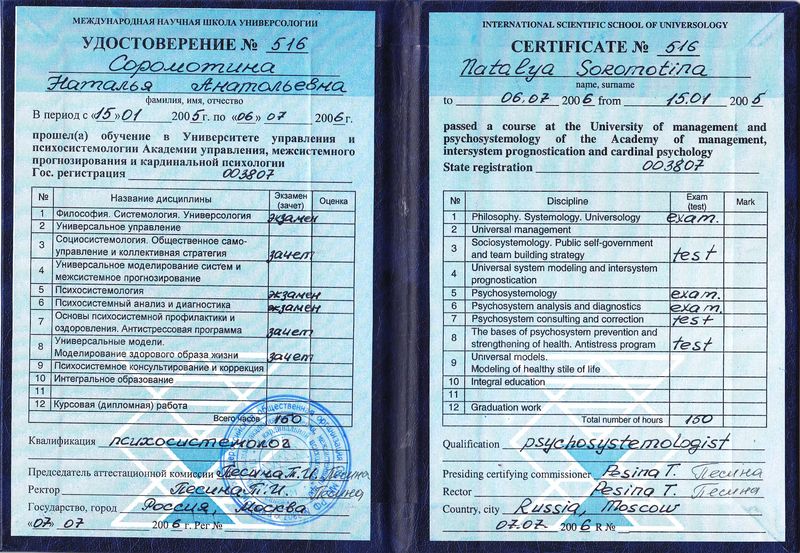 МЕЖДУНАРОДНАЯ НАУЧНАЯ ШКОЛА УНИВЕРСОЛОГИИ
УДОСТОВЕРЕНИЕ № 516
Соромотина
Наталья Анатольевна
фамилия, имя, отчество
В период с «15»01 2005г. по «06» 07 2006г.
прошел(а) обучение в Университете управления и
психосистемологии Академии управления, межсистемного
прогнозирования и кардинальной психологии
Гос. регистрация 003807
№ Название дисциплины Экзамен (зачет) Оценка
1 Философия. Системология. Универсология экзамен
2 Универсальное управление
3 Социосистемология. Общественное само-
управление и коллективная стратегия зачет
4 Универсальное моделирование систем и
межсистемное прогнозирование
5 Психосистемология экзамен
6 Психосистемный анализ и диагностика экзамен
7 Основы психосистемной профилактики и
оздоровления. Антистрессовая программа зачет
8 Универсальные модели.
Моделирование здорового образа жизни зачет
9 Психосистемное консультирование и коррекция
10 Интегральное образование
11
12 Курсовая (дипломная) работа
Всего часов 150
Квалификация психосистемолог
Председатель аттестационной комиссии Песина Т.И. Песина
Ректор Песина Т.И. Песина
Государство, город Россия, Москва
«07» 07 2006 г. Рег №
INTERNATIONAL SCIENTIFIC SCHOOL OF UNIVERSOLOGY
CERTIFICATE № 516
Natalya Soromotina
name, surname
to 06.07 2006 from 15.01 2005
passed a course at the University of management and
psychosystemology of the Academy of management,
intersystem prognostication and cardinal psychology
State registration 003807
№ Discipline Exam (test) Mark
1 Philosophy. Systemology. Universology exam.
2 Universal management
3 Sociosystemology. Public self-government
and team building strategy test
4 Universal system modeling and intersystem
prognostication
5 Psychosystemology exam.
6 Psychosystem analysis and diagnostics exam.
7 Psychosystem consulting and correction test
8 The bases of psychosystem prevention and
strengthening of health. Antistress program test
9 Universal models.
Modeling of healthy stile of life
10 Integral education
11
12 Graduation work
Total number of hours 150
Qualification psychosystemologist
Presiding certifying commissioner Pesina T. Песина
Rector Pesina T. Песина
Country, city Russia, Moscow
07.07 2006 R №